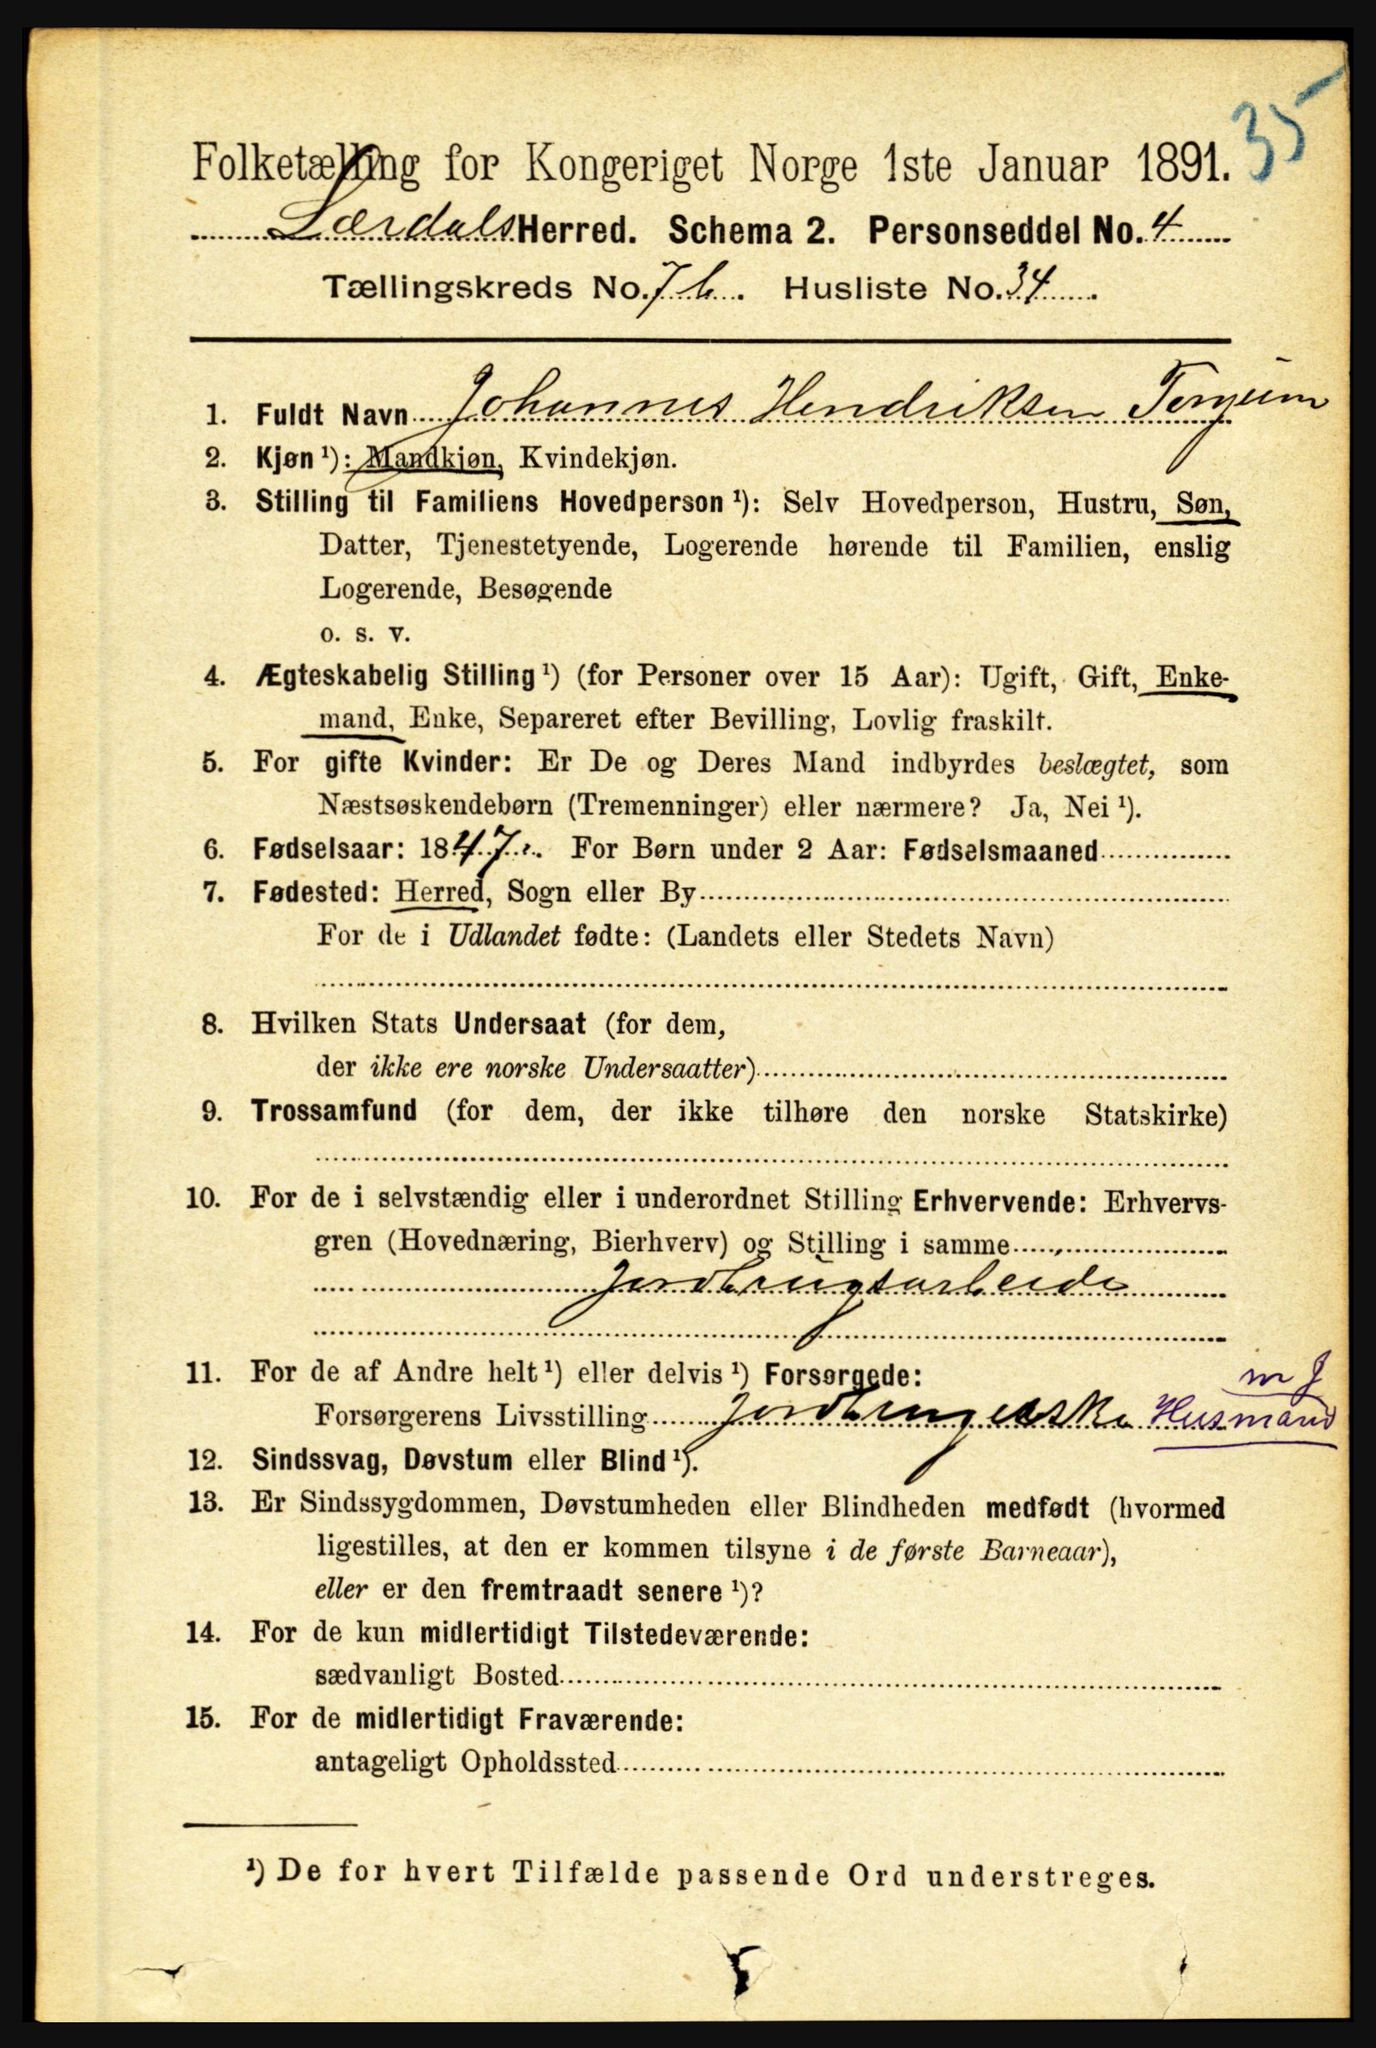 35
Folketælling for Kongeriget Norge 1ste Januar 1891.
Lærdals Herred. Schema 2. Personseddel No. 4
Tællingskreds No. 7 b. Husliste No. 34
1. Fuldt Navn Johannes Hendriksen Tonjum
2. Kjøn ¹): Mandkjøn, Kvindekjøn.
3. Stilling til Familiens Hovedperson ¹): Selv Hovedperson, Hustru, Søn,
Datter, Tjenestetyende, Logerende hørende til Familien, enslig
Logerende, Besøgende
o. s. v.
4. Ægteskabelig Stilling ¹) (for Personer over 15 Aar): Ugift, Gift, Enke-
mand, Enke, Separeret efter Bevilling, Lovlig fraskilt.
5. For gifte Kvinder: Er De og Deres Mand indbyrdes beslægtet, som
Næstsøskendebørn (Tremenninger) eller nærmere? Ja, Nei ¹).
6. Fødselsaar: 1847. For Børn under 2 Aar: Fødselsmaaned
7. Fødested: Herred, Sogn eller By
For de i Udlandet fødte: (Landets eller Stedets Navn)
8. Hvilken Stats Undersaat (for dem,
der ikke ere norske Undersaatter)
9. Trossamfund (for dem, der ikke tilhøre den norske Statskirke)
10. For de i selvstændig eller i underordnet Stilling Erhvervende: Erhvervs-
gren (Hovednæring, Bierhverv) og Stilling i samme
Jordbrugsarbeide
11. For de af Andre helt ¹) eller delvis ¹) Forsørgede:
m J
Forsørgerens Livsstilling Husmand
12. Sindssvag, Døvstum eller Blind ¹).
13. Er Sindssygdommen, Døvstumheden eller Blindheden medfødt (hvormed
ligestilles, at den er kommen tilsyne i de første Barneaar),
eller er den fremtraadt senere ¹)?
14. For de kun midlertidigt Tilstedeværende:
sædvanligt Bosted
15. For de midlertidigt Fraværende:
antageligt Opholdssted
¹) De for hvert Tilfælde passende Ord understreges.